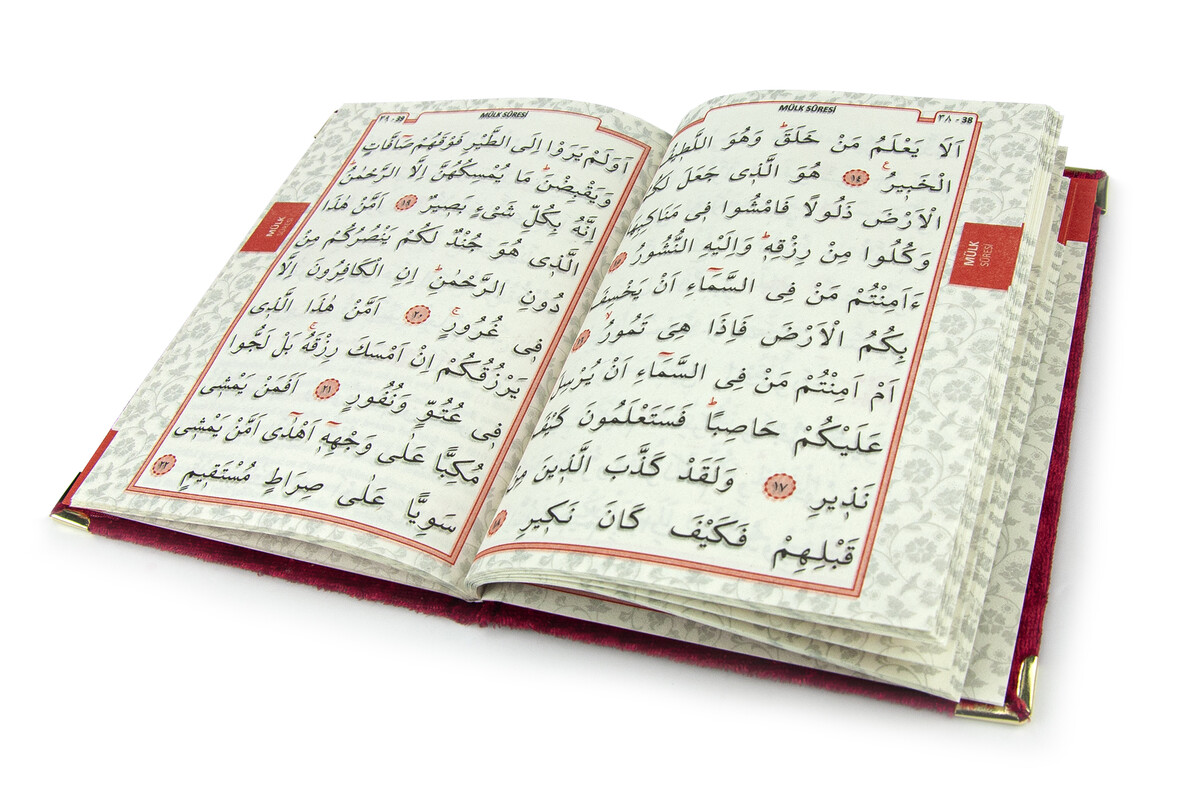 MÜLK SÛRESİ
٣٨ - 38
اَلَا يَعْلَمُ مَنْ خَلَقَۜ وَهُوَ
الْخَب۪يرُ۟ ﴿١٤﴾ هُوَ الَّذ۪ي جَعَلَ
الْاَرْضَ ذَلُولًا فَامْشُوا ف۪ي مَنَاكِبِهَا
وَكُلُوا مِنْ رِزْقِه۪ۜ وَاِلَيْهِ النُّشُورُ
ءَاَمِنْتُمْ مَنْ فِي السَّمَٓاءِ اَنْ يَخْسِفَ
بِكُمُ الْاَرْضَ فَاِذَا هِيَ تَمُورُۙ ﴿١٦﴾
اَمْ اَمِنْتُمْ مَنْ فِي السَّمَٓاءِ اَنْ
عَلَيْكُمْ حَاصِبًاۜ فَسَتَعْلَمُونَ كَيْفَ
نَذ۪يرِ ﴿١٧﴾ وَلَقَدْ كَذَّبَ الَّذ۪ينَ مِنْ
قَبْلِهِمْ فَكَيْفَ كَانَ نَك۪يرِ ﴿١٨﴾
MÜLK
SÛRESİ
MÜLK SÛRESİ
39
اَوَلَمْ يَرَوْا اِلَى الطَّيْرِ فَوْقَهُمْ صَٓافَّاتٍ
وَيَقْبِضْنَۜ مَا يُمْسِكُهُنَّ اِلَّا الرَّحْمٰنُۜ
اِنَّهُ بِكُلِّ شَيْءٍ بَص۪يرٌ ﴿١٩﴾ اَمَّنْ هٰذَا
الَّذ۪ي هُوَ جُنْدٌ لَكُمْ يَنْصُرُكُمْ مِنْ
دُونِ الرَّحْمٰنِۜ اِنِ الْكَافِرُونَ اِلَّا
ف۪ي غُرُورٍۚ ﴿٢٠﴾ اَمَّنْ هٰذَا الَّذ۪ي
يَرْزُقُكُمْ اِنْ اَمْسَكَ رِزْقَهُۚ بَلْ لَجُّوا
ف۪ي عُتُوٍّ وَنُفُورٍ ﴿٢١﴾ اَفَمَنْ يَمْش۪ي
مُكِبًّا عَلٰى وَجْهِه۪ٓ اَهْدٰٓى اَمَّنْ يَمْش۪ي
سَوِيًّا عَلٰى صِرَاطٍ مُسْتَق۪يمٍ ﴿٢٢﴾
MÜLK
SÛRESİ